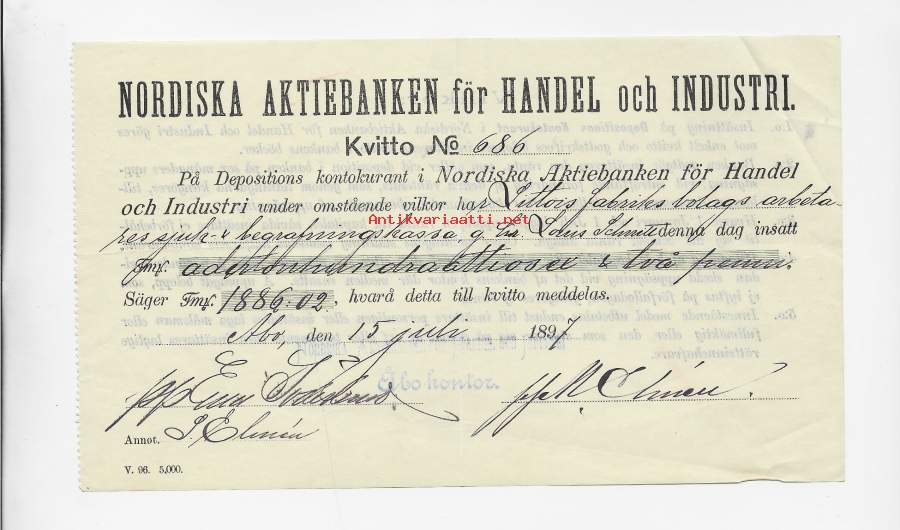 NORDISKA AKTIEBANKEN för HANDEL och INDUSTRI.
Kvitto No 686
På Depositions kontokurant i Nordiska Aktiebanken för Handel
och Industri under omstående vilkor har Littois fabriks bolags arbeta-
Antikvariaatti.net
res sjuk- & begrafningskassa g. Louis Schmitt denna dag insatt
Fmk. adertonhundraåttiosex & två penni.
Säger Fmk. 1886.02, hvarå detta till kvitto meddelas.
Åbo, den 15 juli 1897
Åbo kontor.
Annot.
V. 96. 5,000.